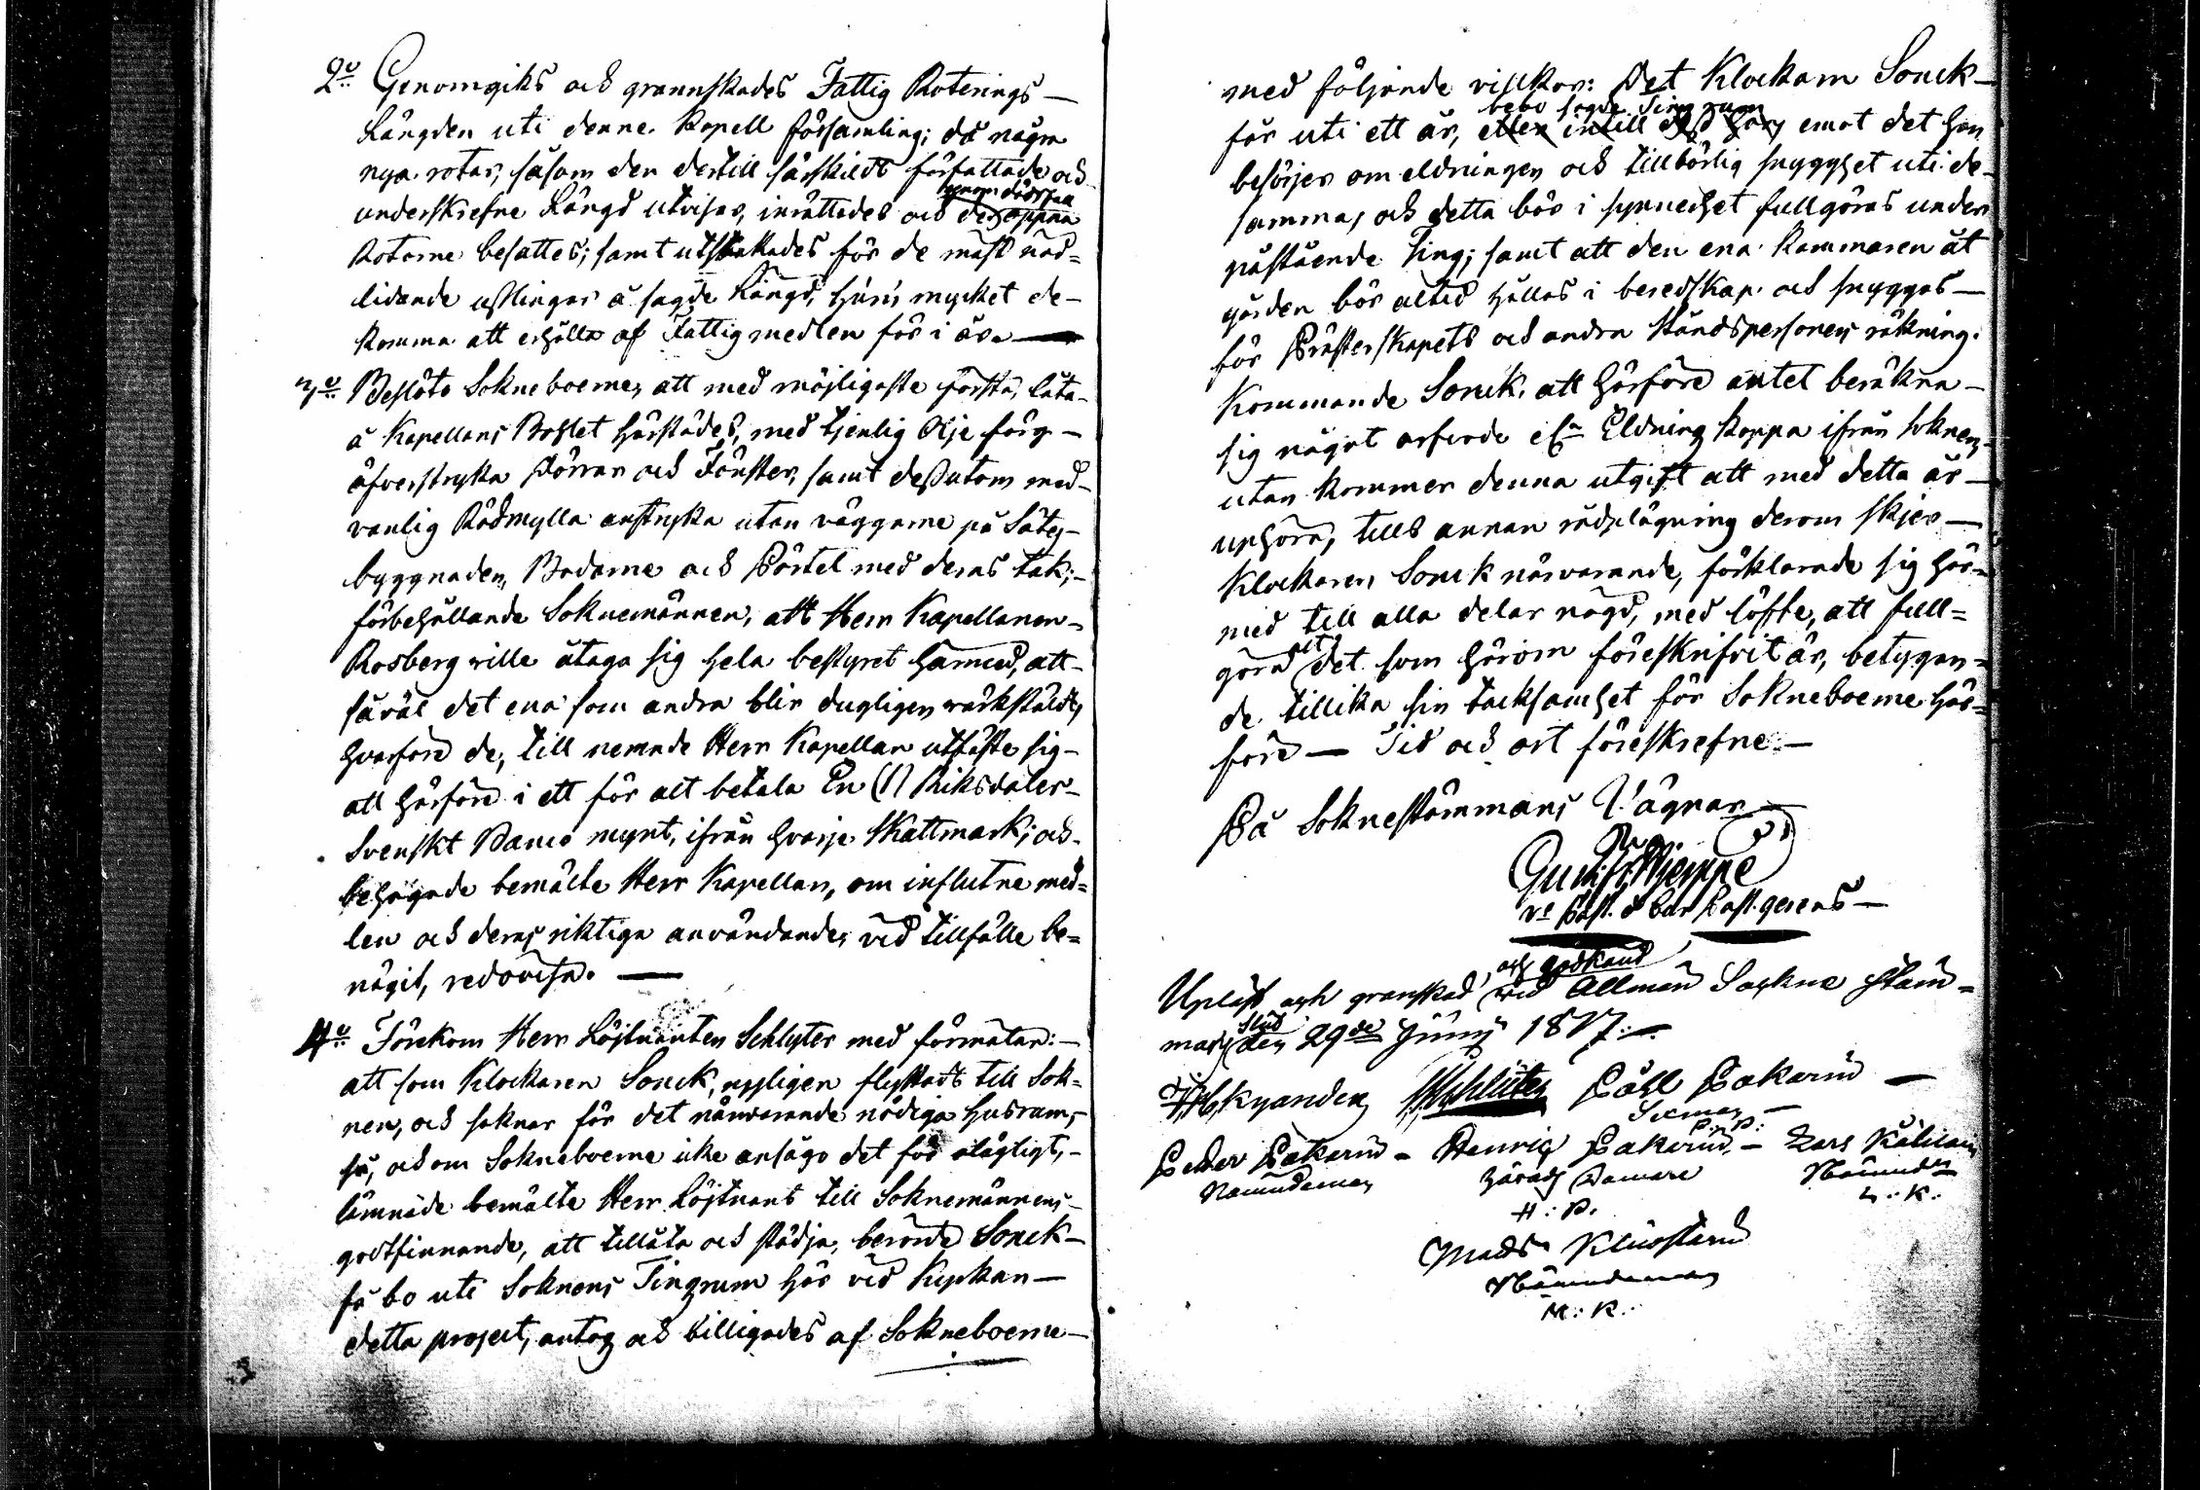 2o Genomgiks och grannskades Fattig Roterings-
Längden uti denne Kapell församling; då några
nya rotar, såsom den dertill särskildt författade och
genom dödsfall
underskrefne Längd utvisar, inrättades och de öppna
Rotarne besattes; samt utstakades för de mäst nöd=
lidande uslingar å sagde Längd, huru mycket de-
komma att erhålla af Fattigmedlen för i år.
3o Beslöto Sokneboerne, att med möjligaste första, låta-
å Kapellans Bohlet härstädes, med tjenlig Olje färg-
öfverstryka Dörrar och Fönster, samt dessutom med-
vanlig Rödmylla anstryka utan väggarne på Sätes-
byggnaden, Bodarne och Pörtet med deras tak;-
förbehållande Soknemännen, att Herr Kapellanen-
Rosberg ville åtaga sig hela bestyret härmed, att-
såväl det ena som andra blir dugligen värkstäldt,
hvarföre de, till nemnde Herr Kapellan utfäste sig-
att härföre i ett för alt betala En (1) Riksdaler-
Svenskt Banco mynt, ifrån hvarje Skattmark; och-
behagade bemälte Herr Kapellan, om influtne med=
len och deras riktiga användande, vid tillfälle be=
nägit, redovisa.
4o Förekom Herr Löjtnanten Schlyter med förmälan:-
att som Klockaren Sonck, nyligen flyttadt till Sok=
nen, och saknar för det närvarande nödiga husrum,-
så, och om Sokneboerne icke ansågo det för olägligt,-
lämnade bemälte Herr Löjtnant till Soknemännens-
godtfinnande, att tillåta och städja, berörde Sonck-
få bo uti Soknens Tingsrum här vid Kyrkan-
detta project, antog och billigades af Sokneboerne-
med följande villkor: Det Klockarn Sonck-
bebo sagde Ting rum
får uti ett år, eller intill emot det han
besörjer om eldningen och tillbörlig snygghet uti de-
samma, och detta bör i synnerhet fullgöras under
påstående Ting; samt att den ena Kammaren åt
gården bör altid hållas i beredskap och snyggas-
för Prästerskapets och andra Ståndspersoners räkning.
Kommande Sonck, att härföre intet beräkna-
sig något arfvode eller Eldning kappa ifrån soknen,-
utan kommer denna utgift att med detta år-
uphöra, tills annan rådplägning derom skjer-
Klockaren Sonck närvarande, förklarade sig här=
med till alla delar nögd, med löfte, att full=
alt
göra det som härom föreskrifvit är, betygan=
de tillika sin tacksamhet för Sokneboerne här=
före - Tid och ort föreskrefne.-
På Soknestämmans Vägnar-
Gustaf
vice Past. & Cur Past. gerens-
och godkänd
Upläst och granskad vid Allmän Sockne stäm=
slud
man, den 29de Junij 1817.
Schlüter Påhl Pakarin-
Sexman
P.P.
Peder Pakarin- Henric Pakarin,- Lars
Nämndeman härads Domare Nämndeman
H: P. L: K:
Mads Kluustarin
Nämndeman
M: K: